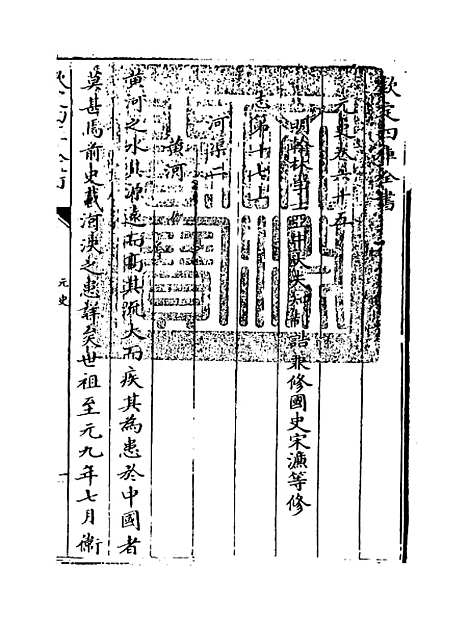 欽定四庫全書
元史卷六十五
明翰林學士亞中大夫知制誥兼修國史宋濂等修
志第十七上
河渠二
黄河
黄河之水其源遠而高其流大而疾其為患於中國者
莫甚焉前史載河決之患詳矣世祖至元九年七月衛
元史
一